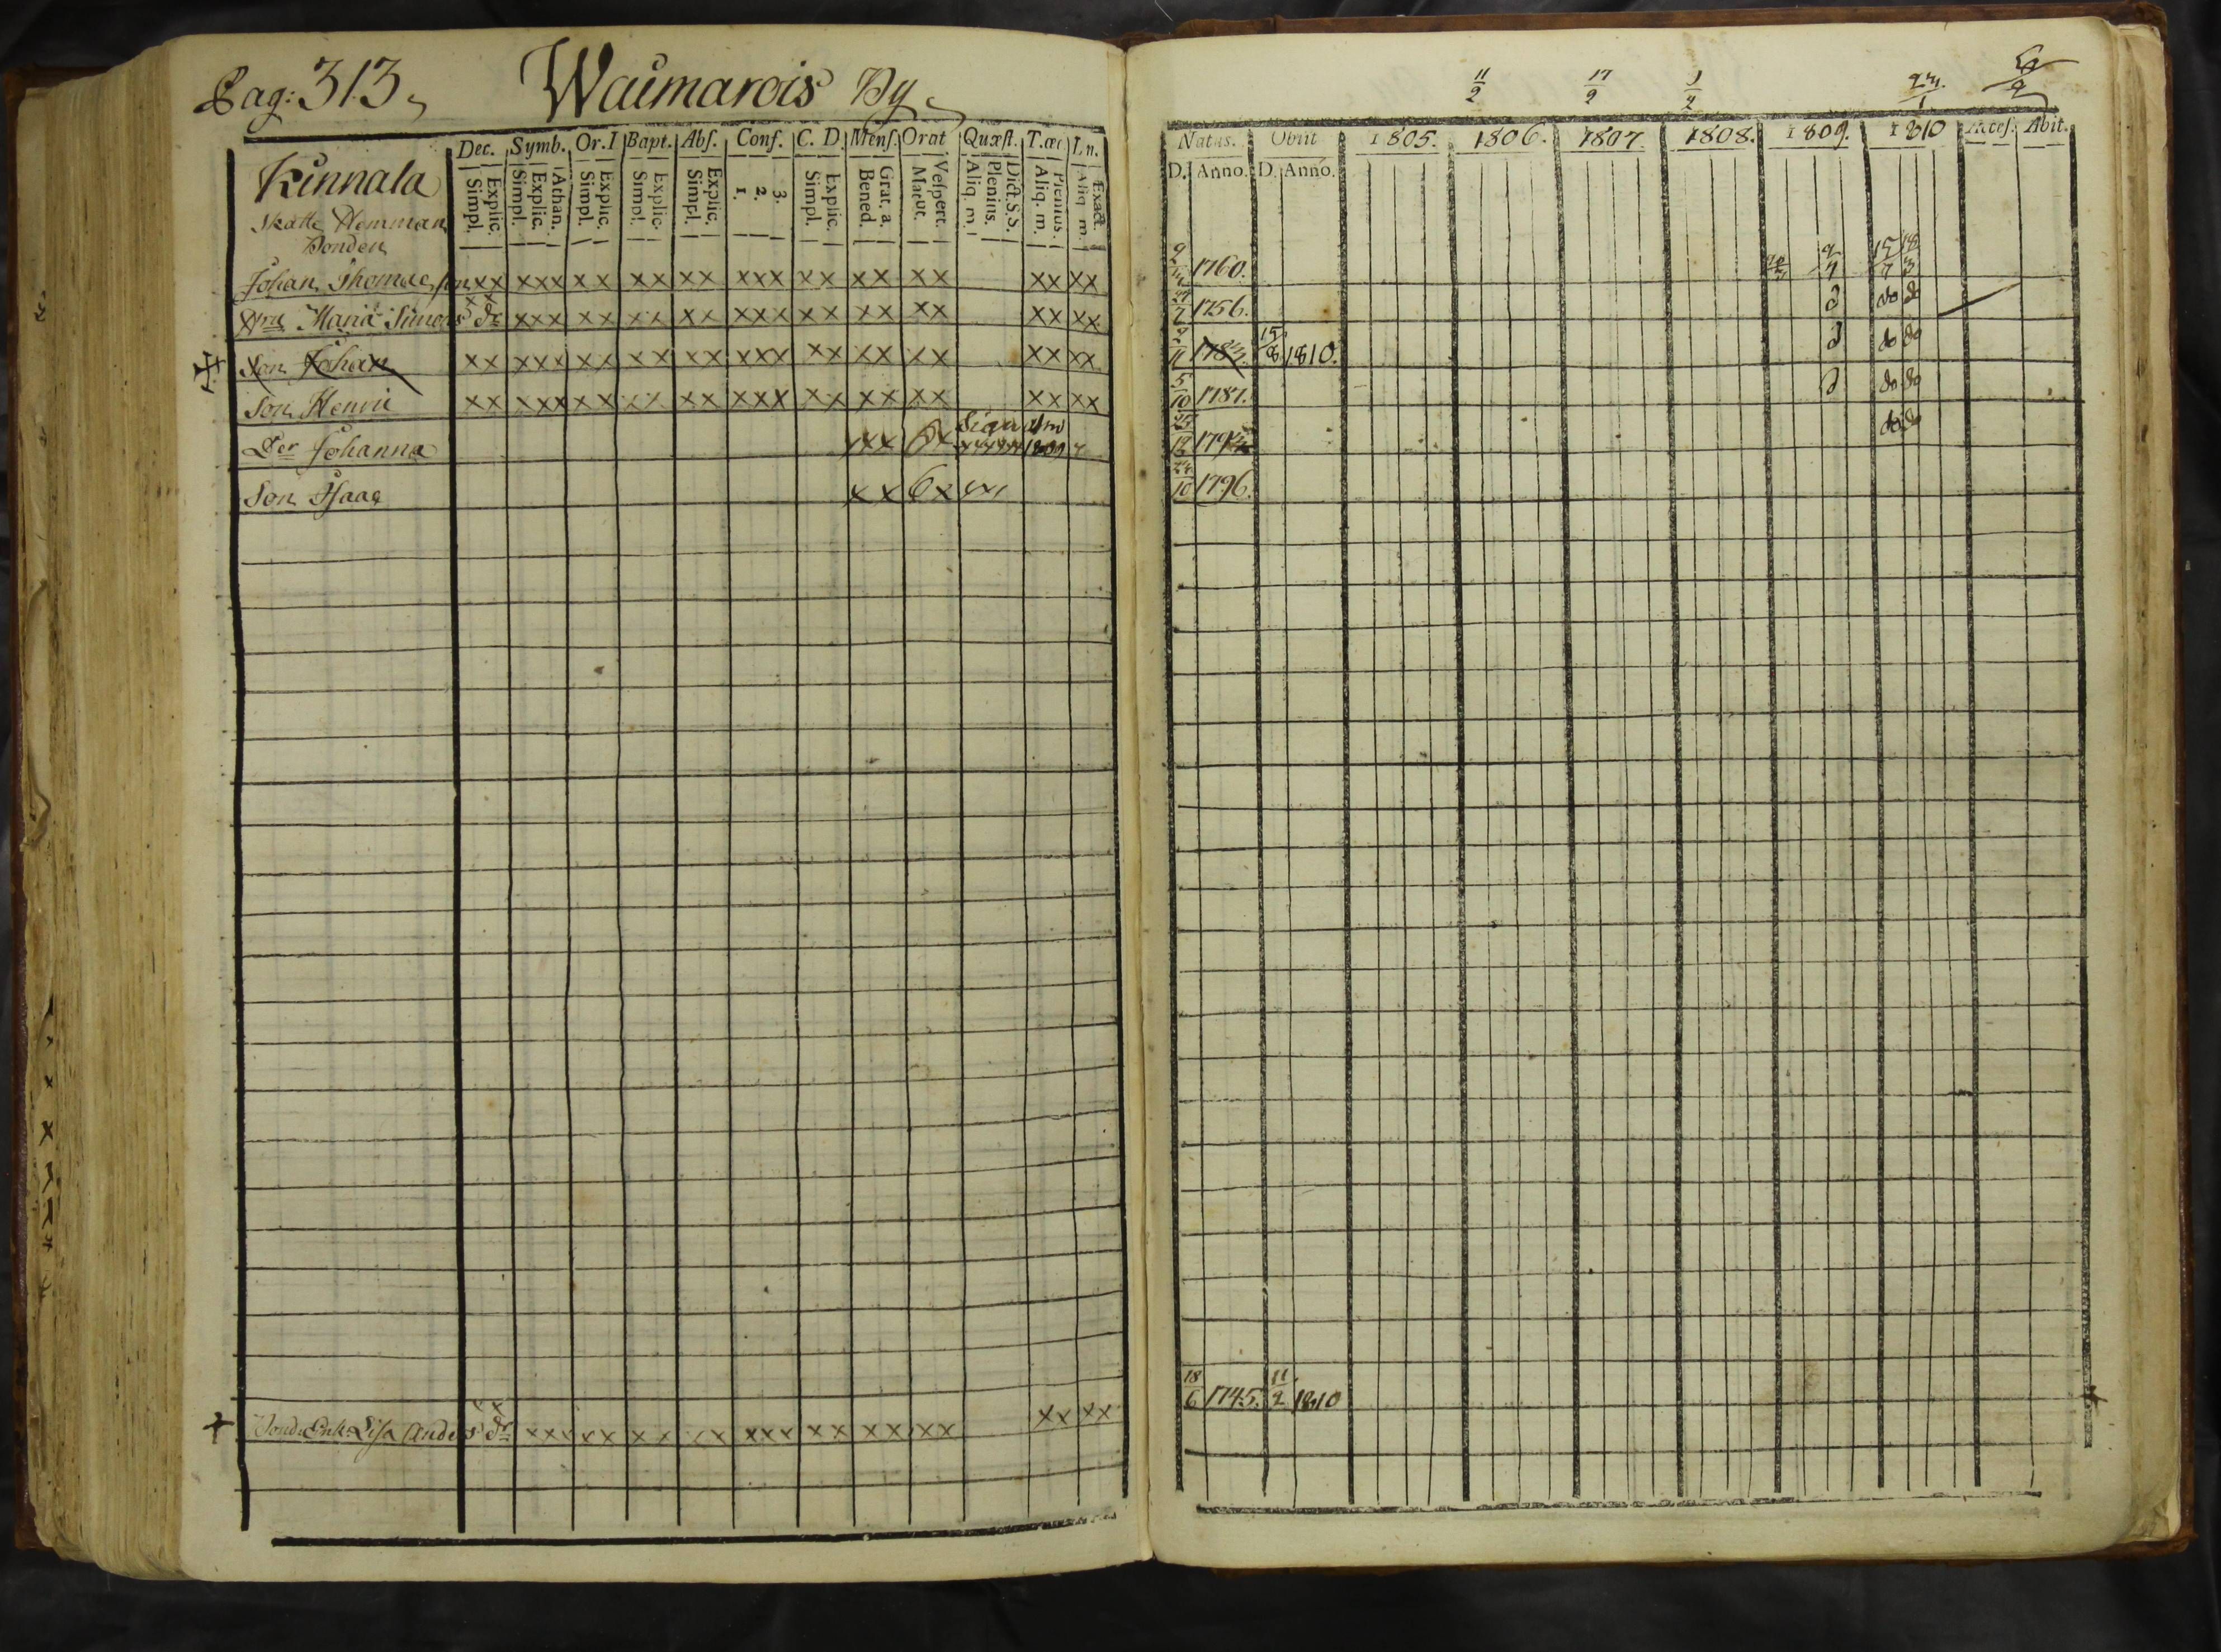 Pag: 313, Waimarois By
Kinnala
Skatte Hemman
Bonden
Dec. Symb. Or. I Bapt. Abs. Conf. C. D. Mens. Orat Quæst. T. œc Ln.
Explic. Simpl. Athan. Explic. Simpl. Explic. Simpl. Explic. Simpl. Explic. Simpl. 3. 2. 1. Explic. Simpl. Grat. a. Bened. Vespert. Matut. Dict. S. S. Plenius. Aliq. m. Plenius. Aliq. m. Exact. Aliq. m.
Johan Thomae son xx xxx xx xx xx xxx xx xx xx xx xx
Hru Maria Simons dr xx xxx xx xx xx xxx xx xx xx xx xx
Son Johan xx xxx xx xx xx xxx xx xx xx xx xx
Son Henric xx xxx xx xx xx xxx xx xx xx xx xx
Der Johanna xxx 1809
Son Isaac xx 6x
Bonde Enk. Lisa Anders dr xx xxx xx xx xx xxx xx xx xx xx xx
11/2 17/2 1/2
Natus. Obiit 1805. 1806. 1807. 1808. 1809. 1810 Acces. Abit.
D. Anno. D. Anno.
1760. 15/7 18/3
1756. do do
1783. 15/8 1810. do do
5/10 1787. do do
do do
24/10 1796.
18/6 1745. 11/2 1810